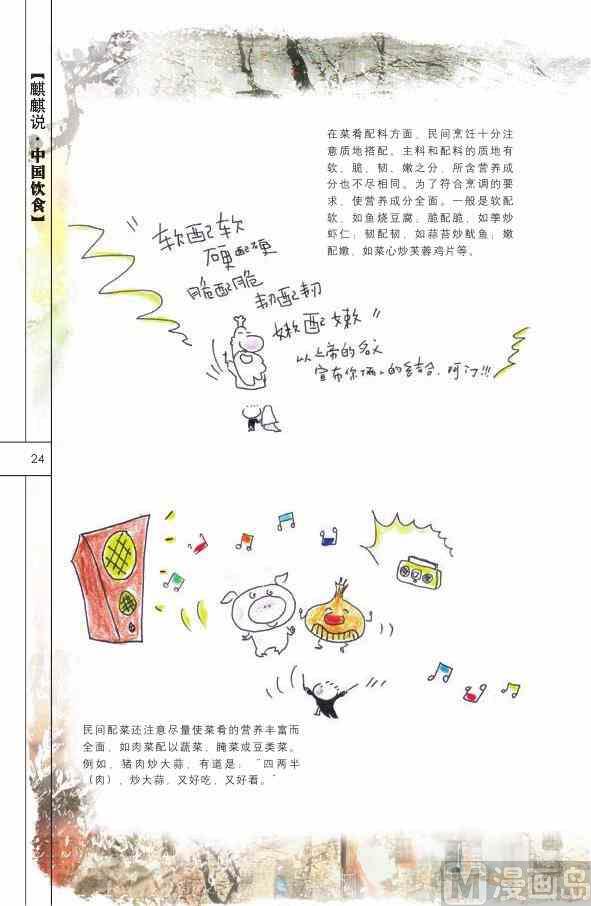 【麒麟说·中国饮食】
在菜肴配料方面，民间烹饪十分注
意质地搭配。主料和配料的质地有
软、脆、韧、嫩之分，所含营养成
分也不尽相同。为了符合烹调的要
求，使营养成分全面。一般是软配
软，如鱼烧豆腐，脆配脆，如荸炒
虾仁；韧配韧，如蒜苔炒鱿鱼；嫩
配嫩，如菜心炒芙蓉鸡片等。
软配软
硬配硬
脆配脆
韧配韧
嫩配嫩"
以上帝的名义
宣布你俩的结合，阿门!!!
24
民间配菜还注意尽量使菜肴的营养丰富而
全面，如肉菜配以蔬菜、腌菜或豆类菜。
例如，猪肉炒大蒜，有道是："四两半
（肉），炒大蒜，又好吃，又好看。"
M漫画岛